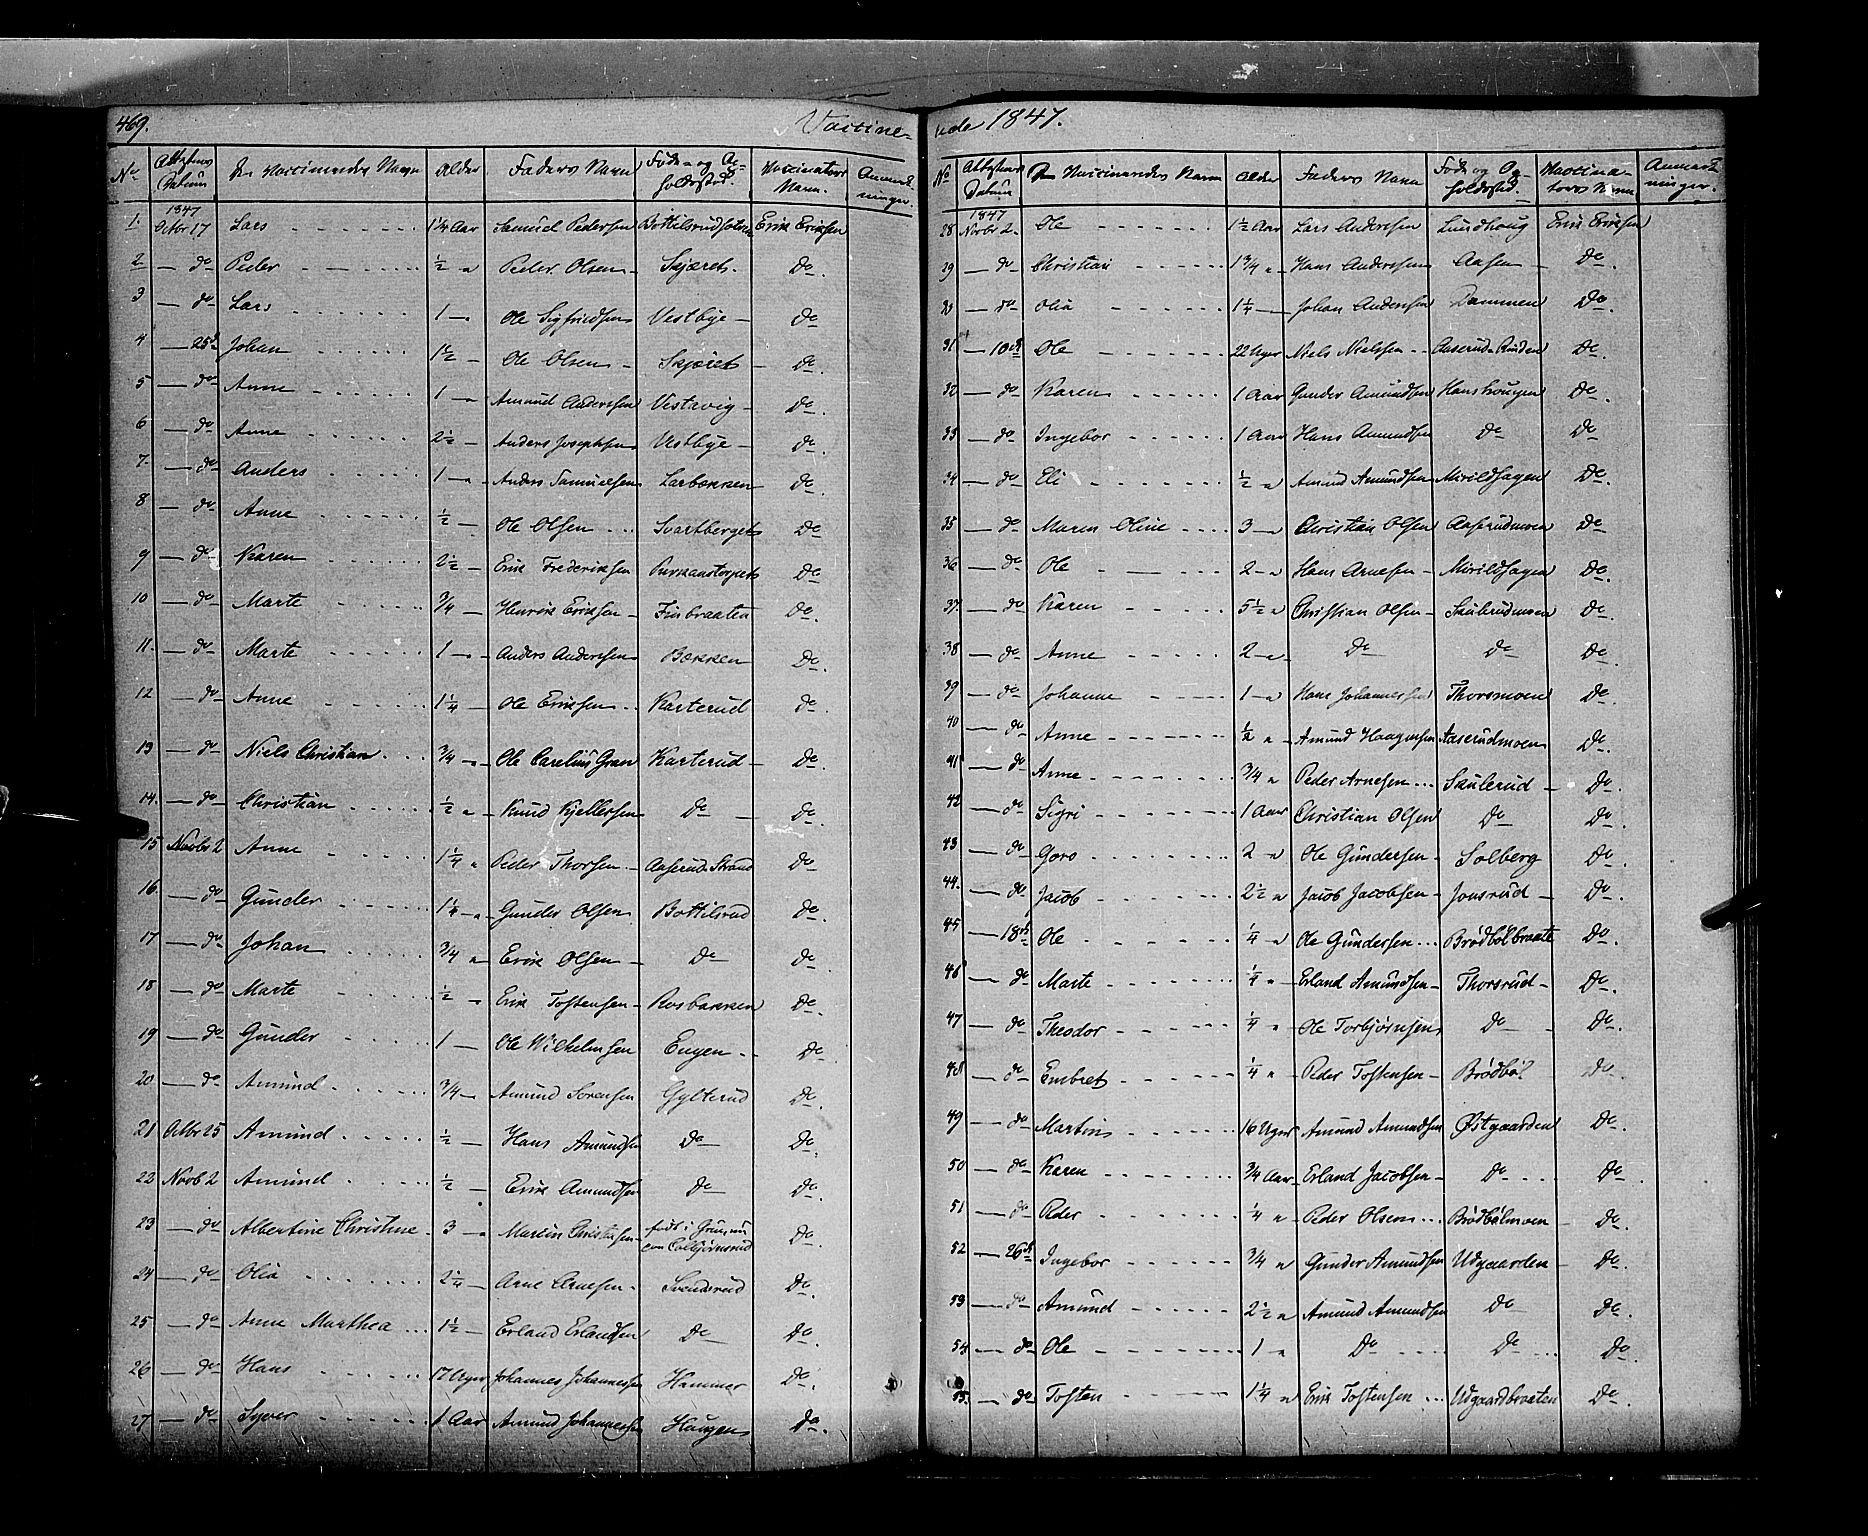 469.
Vaccine-
No | Attestens Datum | De Vaccineredes Navn | Alder | Faders Navn | Føde- og Opholdssted. | Vaccinateurs Navn. | Anmærkninger.
1847
1. Octbr 17 Lars 1¼ Aar Samuel Pedersen Erik Eriksen
2 — do Peder ½ " Peder Olsen Skjæret. Do.
3 — do Lars 1 — Ole Sigfridsen Vestbye — Do
4 — 25d Johan 1½ — Ole Olsen — Skjæret — Do.
5 — do Anne 1 — Amund Andersen Vestavig — Do.
6 — do Anne 2½ — Anders Josephsen Vestbye — Do.
7. — do Anders 1 — Anders Samuelsen Larbækken Do.
8 — do Anne ½ — Ole Olsen Svartberget Do
9 — do Karen 2½ — Erik Frederiksen Do.
10 — do Marte ¾ — Henrik Eriksen — Finbraaten Do.
11. — do Marte 1 — Anders Andersen Bækken Do.
12 — do Anne 1¼ — Ole Eriksen Karterud Do.
13 — do Niels Christian ¾ — Ole Carelius Gran Karterud — Do.
14. — do Christian ½ " Knud Kjellersen Do — Do.
15 Novbr 2 Anne 1¼ " Peder Thorsen — Aaserud Strand Do
16. — do Gunder 1¼ — Gunder Olsen Bottilsrud Do.
17 — do Johan ¾ " Erik Olsen — Do Do.
18 — do Marte ½ " Erik Tostensen — Rosbakken Do.
19 — do Gunder 1 — Ole Wilhelmsen Eugen Do.
20 — do Amund ¾ — Amund Sørensen Gylterud Do.
21 Octbr 25 Amund ½ — Hans Amundsen Do Do.
22 Novb 2 Amund ½ — Erik Amundsen Do Do.
23 — do Albertine Christine 3 " Martin Christofsen født i Do.
24 — do Olia 2¼ — Arne Arnesen — Svenderud Do.
25 — do Anne Marthea 1½ — Erland Erlandsen Do Do.
26 — do Hans 17 Uger Johannes Johannessen Hammer Do.
27 — do Syver 1 Aar Amund Johannessen Haugen Do.
rede 1847.
No | Attestens Datum | De Vaccineredes Navn | Alder | Faders Navn | Føde og Opholdssted. | Vaccinateurs Navn | Anmærkninger.
1847
28 Novbr 2. Ole 1½ Aar Lars Andersen Lundhoug Erik Eriksen
29 — do Christian 1¾ " Hans Andersen Aasen — Do.
30 — do Olia 1¼ — Johan Andersen Dammen Do
31 — 10d Ole 22 Uger Niels Nielsen Aaserud Enden Do.
32 — do Karen 1 Aar Gunder Amundsen Hanshougen Do.
33 — do Ingebor 1 Aar Hans Amundsen Do Do
34 — do Eli ½ " Amund Amundsen Mirildhagen Do.
35 — do Maren Oline 3 — Christian Olsen Aaserudmoen Do
36 — do Ole 2 — Hans Arnesen — Mirildhagen Do.
37. — do Karen 5½ " Christian Olsen — Skulerudmoen Do.
38 — do Anne 2 — Do Do Do.
39 — do Johanne 1 — Hans Johannesen Thorsmoen Do
40 — do Anne ½ " Amund Haagensen Aaserudmoen Do.
41 — do Anne ¾ " Peder Arnesen Skulerud — Do.
42 — do Sigri 1 Aar Christian Olsen Do Do.
43 — do Goro 2 " Ole Gundersen — Solberg Do
44. — do Jacob 2½ " Jacob Jacobsen — Jonsrud — Do.
45 — 18d Ole ¼ " Ole Gundersen Brødbølbraate Do.
46 — do Marte ¼ " Erland Amundsen — Thorsrud — Do.
47 — do Theodor ¼ " Ole Torbjørnsen Do Do.
48 — do Embret ¼ " Peder Tostensen — Brødbøl Do.
49 — do Martin 16 Uger Amund Amundsen Østgaarden Do.
50 — do Karen ¾ Aar Erland Jacobsen — Do Do
51 — do Peder ¼ " Peder Olsen Brødbølmoen Do.
52 — 26d Ingebor ¾ " Gunder Amundsen Udgaarden — Do.
53 — do Amund 2½ " Amund Amundsen Do Do.
54 — do Ole 1 " Do Do Do.
55. — do Tosten 1¼ " Erik Tostensen Udgaardbraaten Do.